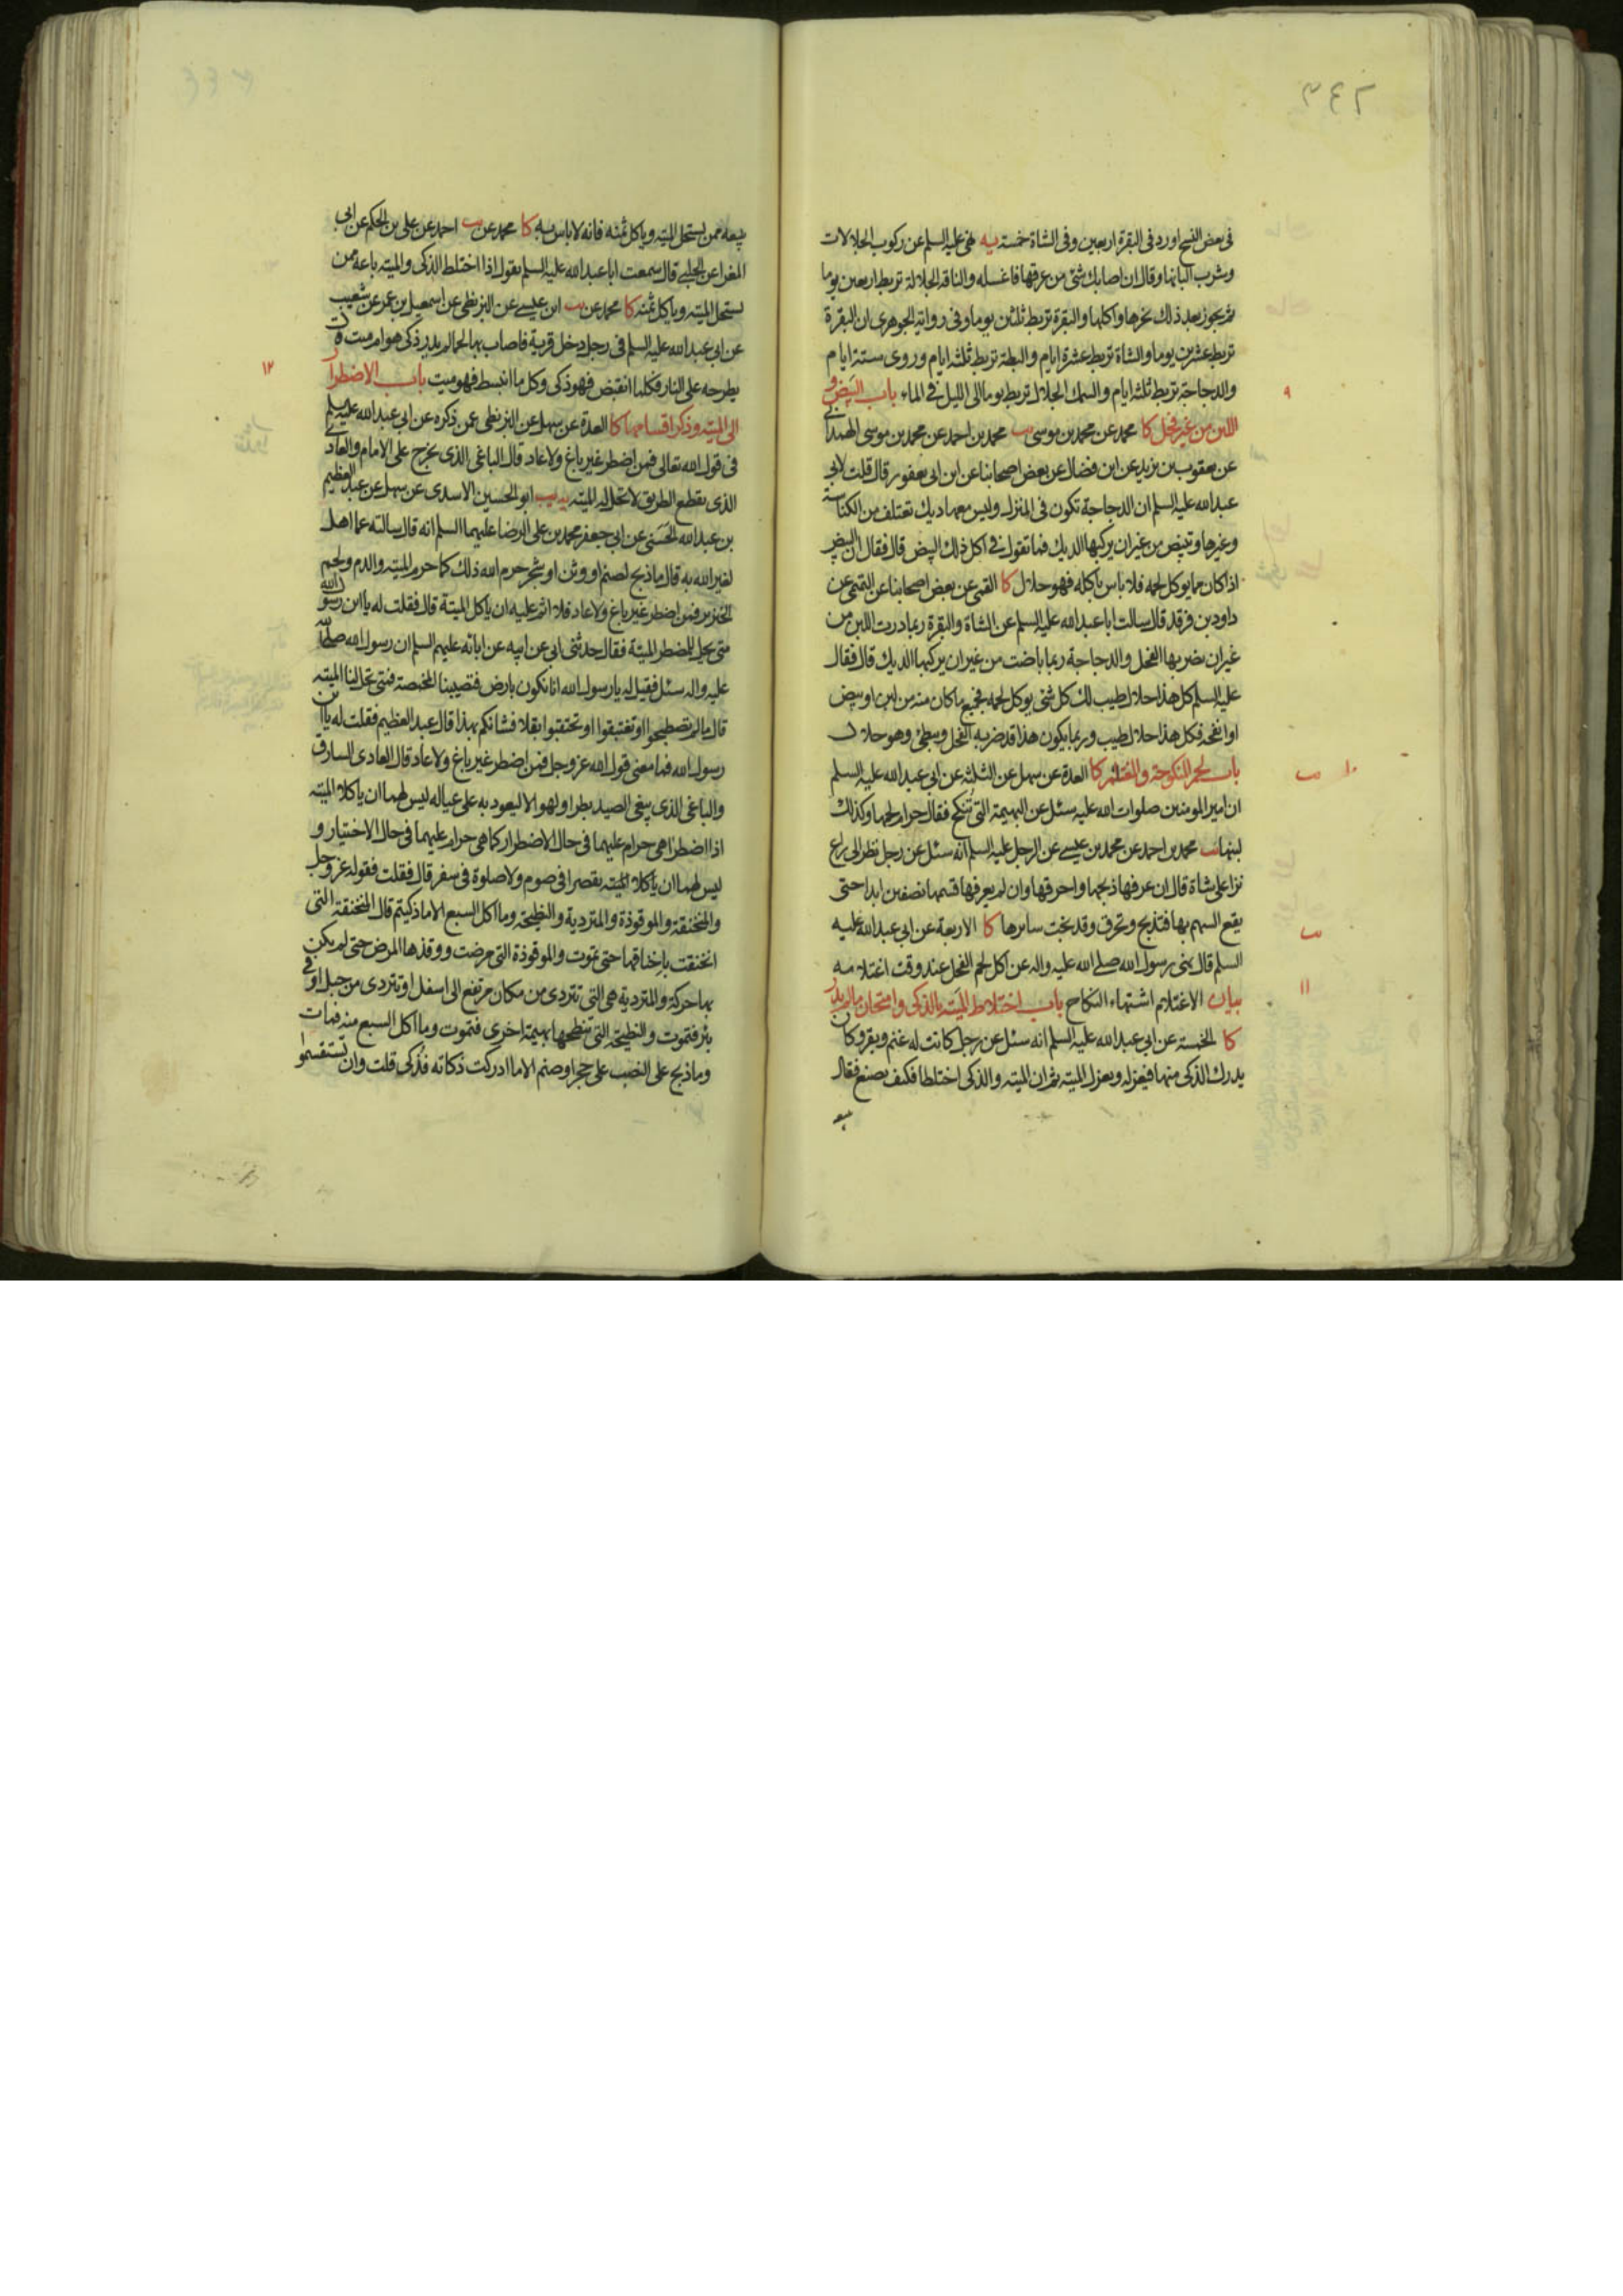 ٣٤٢
في بعض النسخ اورد في البقرة اربعين وفي الشاة خمسة يه نهى عليه السلم عن ركوب الجلالات
وشرب البانها وقال ان اصابك شئ من عرقها فاغسله والناقة الجلالة تربط اربعين يوما
ثم يجوز بعد ذلك نحرها واكلها والبقرة تربط ثلثين يوما وفي رواية الجوهري ان البقرة
تربط عشرين يوما والشاة تربط عشرة ايام والبطة تربط ثلثة ايام وروى ستة ايام
والدجاجة تربط ثلثة ايام والسمك الجلال تربط يوما الى الليل في الماء باب البيض و
٩
اللبن من غير فحل كا محمد عن محمد بن موسى يب محمد بن احمد عن محمد بن موسى الهمداني
عن يعقوب بن يزيد عن ابن فضال عن بعض اصحابنا عن ابن ابي يعفور قال قلت لابي
عبد الله عليه السلم ان الدجاجة تكون في المنزل وليس معها ديك تعتلف من الكناسة
وغيرها وتبيض من غير ان يركبها الديك فما تقول في اكل ذلك البيض قال فقال ان البيض
اذا كان مما يوكل لحمه فلا باس باكله فهو حلال كا القمي عن بعض اصحابنا عن
داود بن فرقد قال سالت ابا عبد الله عليه السلم عن الشاة والبقرة ربما درت اللبن من
غير ان يضربها الفحل والدجاجة ربما باضت من غير ان يركبها الديك قال فقال
عليه السلم كل هذا حلال طيب لك كل شئ يوكل لحمه فجميع ما كان منه من لبن او بيض
او انفحة فكل هذا حلال طيب وربما يكون هذا قد ضربه الفحل ويبطئ وهو حلال
باب لحم المنكوحة والمغتلم كا العدة عن سهل عن الثلثة عن ابي عبد الله عليه السلم
١٠
ان امير المومنين صلوات الله عليه سئل عن البهيمة التي تنكح فقال حرام لحمها وكذلك
لبنها يب محمد بن احمد عن محمد بن عيسى عن الرجل عليه السلم انه سئل عن رجل نظر الى راع
نزا على شاة قال ان عرفها ذبحها واحرقها وان لم يعرفها قسمها نصفين ابدا حتى
يقع السهم بها فتذبح وتحرق وقد نجت سايرها كا الاربعة عن ابي عبد الله عليه
السلم قال نهى رسول الله صلى الله عليه واله عن اكل لحم الفحل عند وقت اغتلامه
بيان الاغتلام اشتهاء النكاح باب اختلاط الميتة بالذكي وامتحان ما لم يدر
١١
كا الخمسة عن ابي عبد الله عليه السلم انه سئل عن رجل كانت له غنم وبقر وكان
يدرك الذكي منها فيعزله ويعزل الميتة ثم ان الميتة والذكي اختلطا فكيف يصنع فقال
يبيعه
يبيعه ممن يستحل الميتة وياكل ثمنه فانه لا باس به كا محمد عن يب احمد عن علي بن الحكم عن ابي
المغرا عن الحلبي قال سمعت ابا عبد الله عليه السلم يقول اذا اختلط الذكي والميتة باعه من
يستحل الميتة وياكل ثمنه كا محمد عن يب ابن عيسى عن البزنطي عن اسمعيل بن عمر عن شعيب
عن ابي عبد الله عليه السلم في رجل دخل قرية فاصاب بها لحما لم يدر ذكي هو ام ميت قال
يطرحه على النار فكلما انقبض فهو ذكي وكل ما انبسط فهو ميت باب الاضطرار
١٢
الى الميتة وذكر اقسامها كا العدة عن سهل عن البزنطي عمن ذكره عن ابي عبد الله عليه السلم
في قول الله تعالى فمن اضطر غير باغ ولا عاد قال الباغي الذي يخرج على الامام والعادي
الذي يقطع الطريق لا تحل له الميتة يه يب ابو الحسين الاسدي عن سهل عن عبد العظيم
بن عبد الله الحسني عن ابي جعفر محمد بن علي الرضا عليهما السلم انه قال سالته عما اهل
لغير الله به قال ما ذبح لصنم او وثن او شجر حرم الله ذلك كما حرم الميتة والدم ولحم
الخنزير فمن اضطر غير باغ ولا عاد فلا اثم عليه ان ياكل الميتة قال فقلت له يا ابن رسول الله
متى يحل للمضطر الميتة فقال حدثني ابي عن ابيه عن ابائه عليهم السلم ان رسول الله صلى الله
عليه واله سئل فقيل له يا رسول الله انا نكون بارض فتصيبنا المخمصة فمتى تحل لنا الميتة
قال ما لم تصطبحوا او تغتبقوا او تحتفئوا بقلا فشانكم بهذا قال عبد العظيم فقلت له يا ابن
رسول الله فما معنى قول الله عز وجل فمن اضطر غير باغ ولا عاد قال العادي السارق
والباغي الذي يبغي الصيد بطرا ولهوا لا ليعود به على عياله ليس لهما ان ياكلا الميتة
اذا اضطرا هي حرام عليهما في حال الاضطرار كما هي حرام عليهما في حال الاختيار و
ليس لهما ان ياكلا الميتة يقصرا في صوم ولا صلوة في سفر قال فقلت فقوله عز وجل
والمنخنقة والموقوذة والمتردية والنطيحة وما اكل السبع الا ما ذكيتم قال المنخنقة التي
انخنقت باخناقها حتى تموت والموقوذة التي مرضت ووقذها المرض حتى لم يكن
بها حركة والمتردية هي التي تتردى من مكان مرتفع الى اسفل او تتردى من جبل او في
بئر فتموت والنطيحة التي تنطحها بهيمة اخرى فتموت وما اكل السبع منه فمات
وما ذبح على النصب على حجر او صنم الا ما ادركت ذكاته فذكي قلت وان تستقسموا